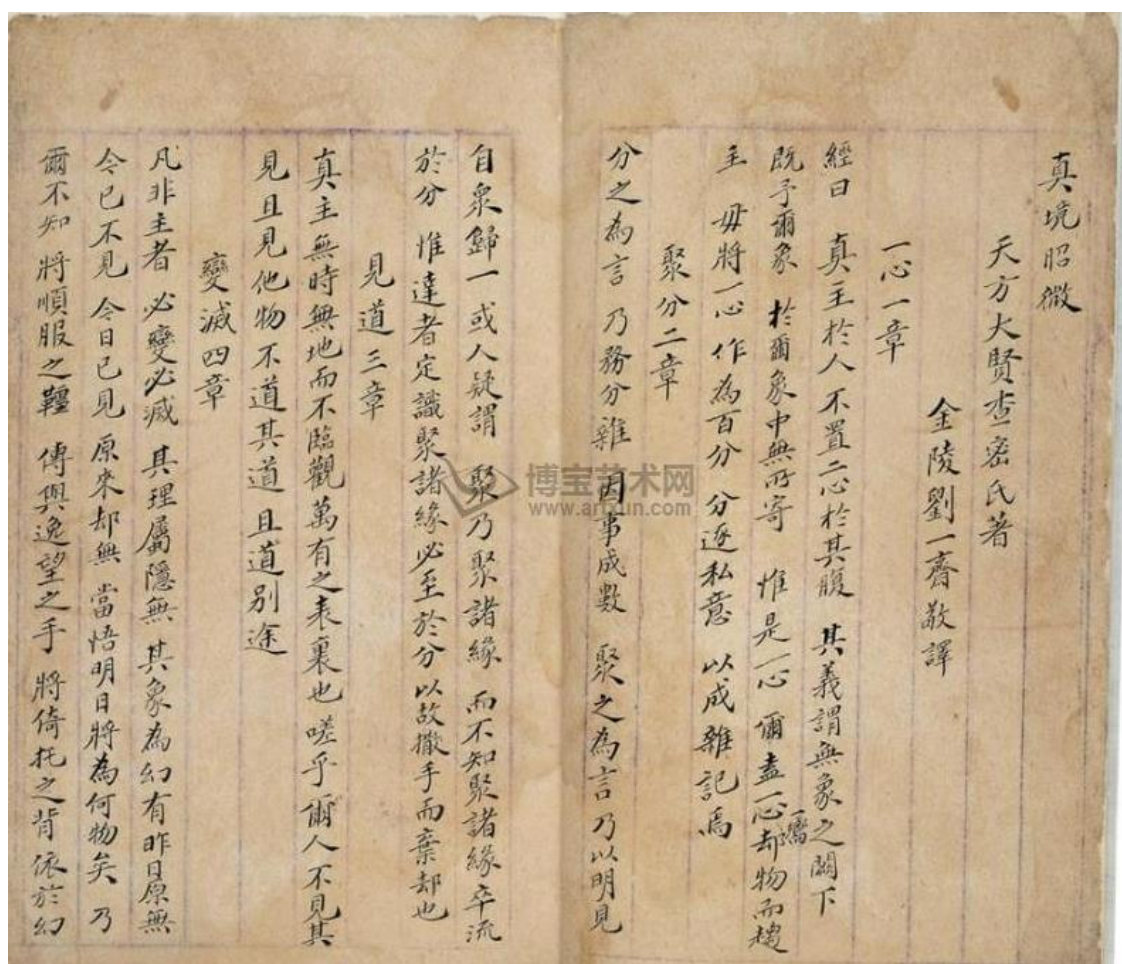 真境昭微
天方大賢查密氏著
金陵劉一齋敬譯
一心一章
經曰 真主於人 不置二心於其腹 其義謂無象之闕下
既予爾象 於爾象中無所寄 惟是一心 爾盍一心却物而趨
主 毋將一心 作為百分 分逐私意 以成雜記焉
聚分二章
分之為言 乃務分雜 因事成數 聚之為言 乃以明見
自眾歸一 或人疑謂 聚乃聚諸緣 而不知聚諸緣 卒流
於分 惟達者定識聚諸緣必至於分 以故撒手而棄却也
見道三章
真主無時無地而不臨觀萬有之表裏也 嗟乎爾人不見其
見且見他物不道其道 且道別途
變滅四章
凡非主者 必變必滅 其理屬隱無 其象為幻有 昨日原無
令已不見 今日已見 原來却無 當悟明日將為何物矣 乃
爾不知 將順服之韁 傳與逸望之手 將倚托之背 依於幻
博宝艺术网
www.artxun.com